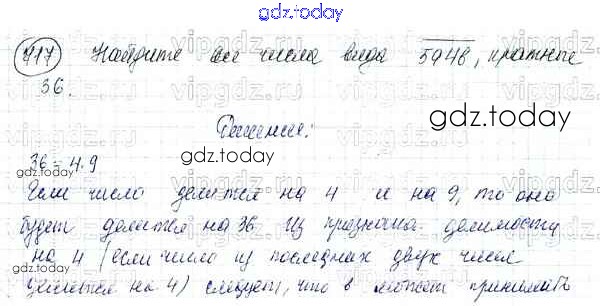 gdz.today
417 Найдите все числа вида 5948, кратные
36.
gdz.today
Решение:
gdz.today
36 = 4·9
gdz.today
Если число делится на 4 и на 9, то оно
будет делится на 36. Из признака делимости
на 4 (если число из последних двух чисел
gdz.today
делится на 4) следует, что в может принимать
gdz.today